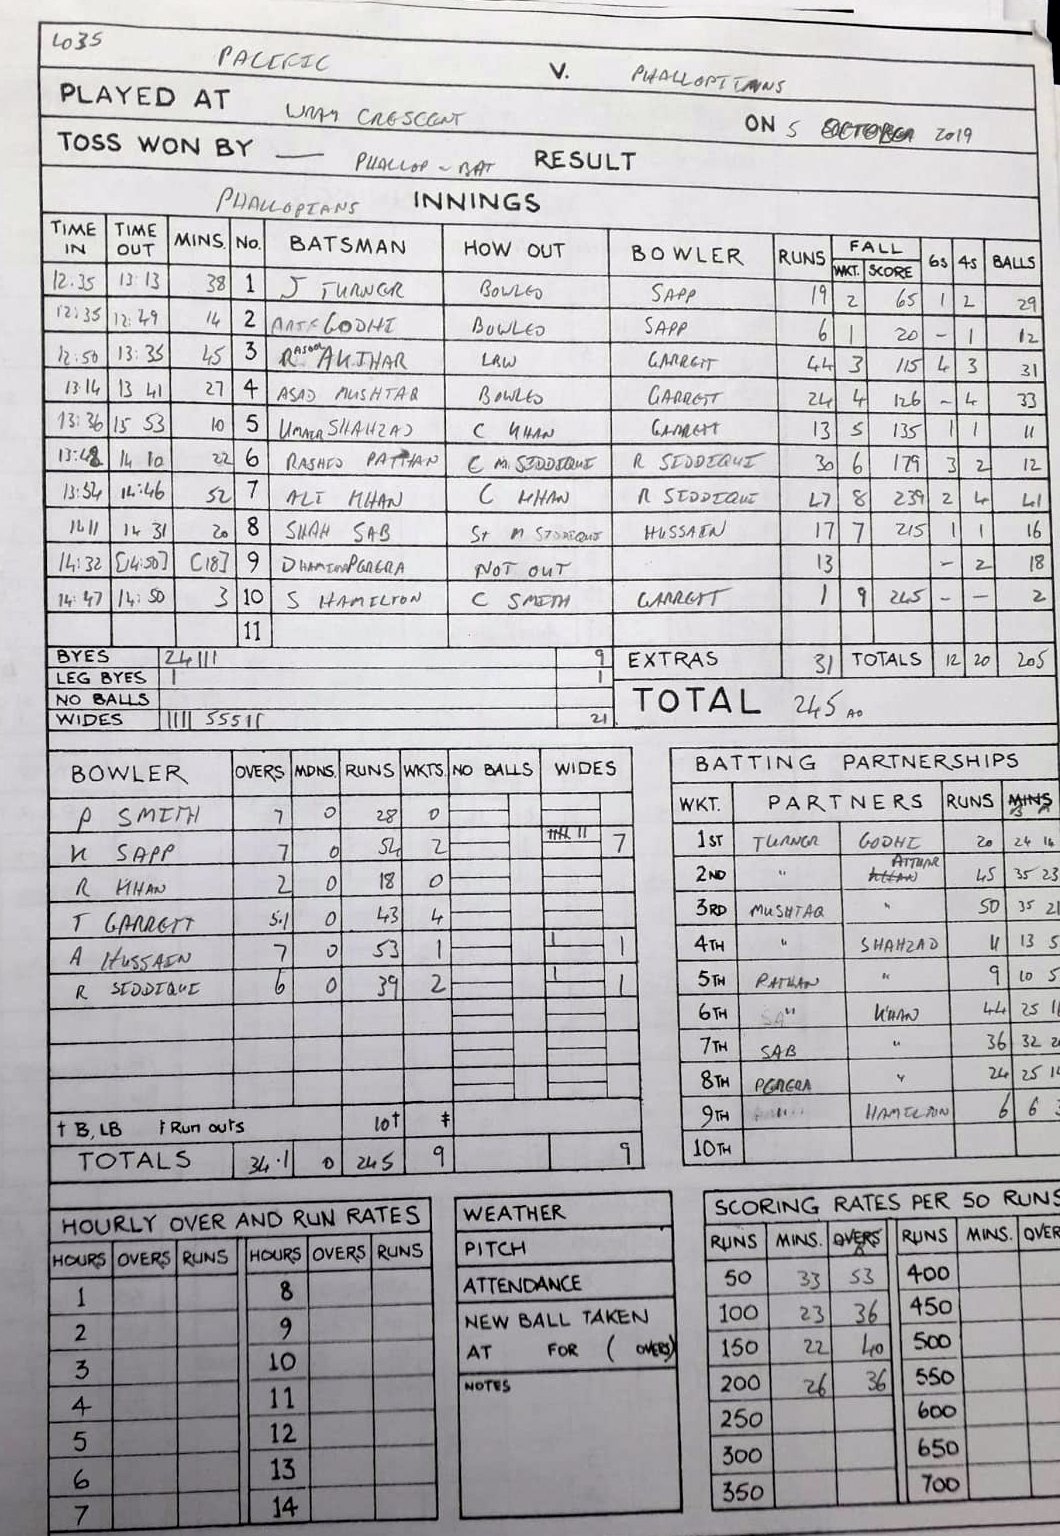 LO3S
PACIFIC V. PHALLOPIANS
PLAYED AT WRAY CRESCENT ON 5 OCTOBER 2019
TOSS WON BY — PHALLOP - BAT RESULT
PHALLOPIANS INNINGS
TIME IN TIME OUT MINS. No. BATSMAN HOW OUT BOWLER RUNS FALL WKT. SCORE 6s 4s BALLS
12:35 13:13 38 1 J TURNER BOWLED SAPP 19 2 65 1 2 29
12:35 12:49 14 2 GODHI BOWLED SAPP 6 1 20 - 1 12
12:50 13:35 45 3 RASOOL AKTHAR LBW GARRETT 44 3 115 4 3 31
13:14 13 41 27 4 ASAD MUSHTAQ BOWLED GARRETT 24 4 126 - 4 33
13:36 15 53 10 5 UMAIR SHAHZAD C KHAN GARRETT 13 5 135 1 1 11
13:48 14 10 22 6 RASHID PATHAN C M. SIDDIQUI R SIDDIQUI 30 6 179 3 2 12
13:54 14:46 52 7 ALI KHAN C KHAN R SIDDIQUI 47 8 239 2 4 41
14 11 14 31 20 8 SHAH SAB St M SIDDIQUI HUSSAIN 17 7 215 1 1 16
14:32 [14:50] [18] 9 DHAMINA PERERA NOT OUT 13 - 2 18
14:47 14:50 3 10 S HAMILTON C SMITH GARRETT 1 9 245 - - 2
11
BYES 24111 9 EXTRAS 31 TOTALS 12 20 205
LEG BYES 1 1
NO BALLS TOTAL 245 AO
WIDES 1111 55511 21
BOWLER OVERS MDNS. RUNS WKTS. NO BALLS WIDES
P SMITH 7 0 28 0
K SAPP 7 0 54 2 7
R KHAN 2 0 18 0
T GARRETT 5.1 0 43 4
A HUSSAIN 7 0 53 1 1 1
R SIDDIQUI 6 0 39 2 1 1
† B, LB ‡ Run outs 10† ‡
TOTALS 34.1 0 245 9 9
BATTING PARTNERSHIPS
WKT. PARTNERS RUNS MINS
1ST TURNER GODHI 20 24 14
2ND " KHAN AKTHAR 45 35 23
3RD MUSHTAQ " 50 35 21
4TH " SHAHZAD 11 13 5
5TH PATHAN " 9 10 5
6TH " KHAN 44 25
7TH SAB " 36 32
8TH PERERA " 24 25
9TH " HAMILTON 6 6
10TH
HOURLY OVER AND RUN RATES
HOURS OVERS RUNS HOURS OVERS RUNS
1 8
2 9
3 10
4 11
5 12
6 13
7 14
WEATHER
PITCH
ATTENDANCE
NEW BALL TAKEN
AT FOR ( OVERS)
NOTES
SCORING RATES PER 50 RUNS
RUNS MINS. OVERS RUNS MINS. OVER
50 33 53 400
100 23 36 450
150 22 40 500
200 26 36 550
250 600
300 650
350 700